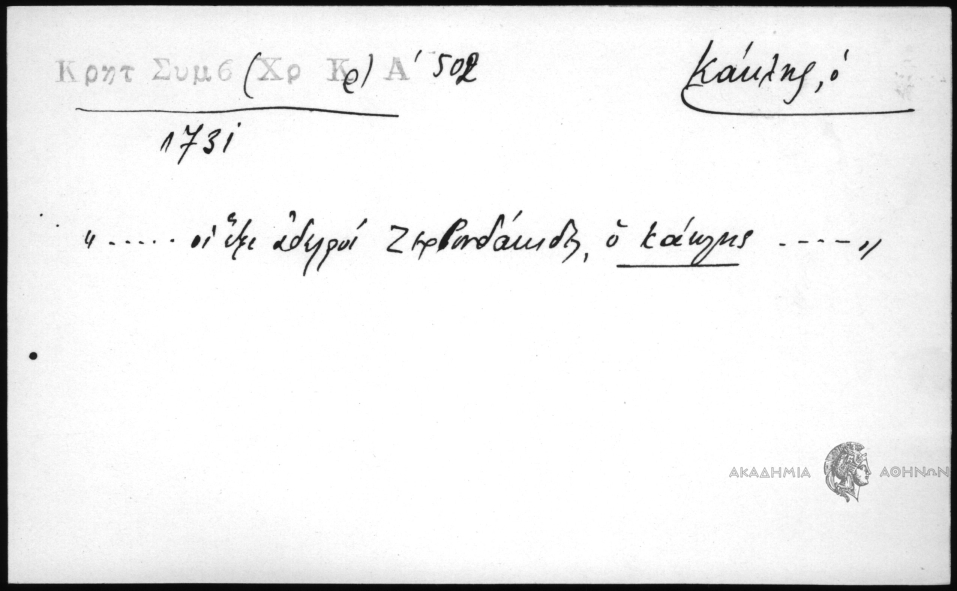 Κρητ Συμβ (Χρ Κρ) Α΄ 502
Κάκλης, ὁ
1731
"..... οἱ ἕξι ἀδερφοί Ζερβουδάκιδες, ὁ Κάκλης ....."
ΑΚΑΔΗΜΙΑ ΑΘΗΝΩΝ